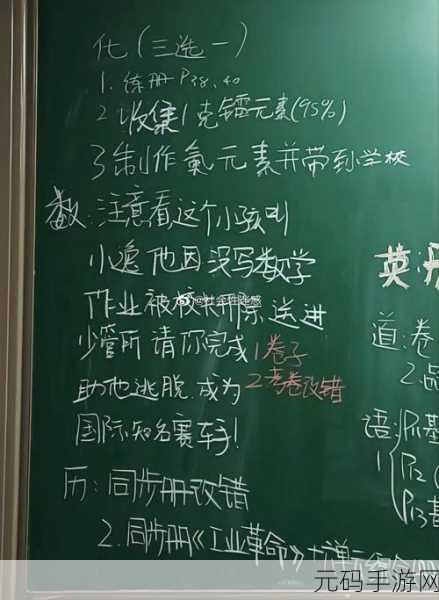 化(三选一)
1. 练册P38、40
2 收集1克镭元素(95%)
3 制作氡元素并带到学校
数:注意看这个小孩叫
小逸他因没写数学
作业被校长开除送进
少管所请你完成 1卷子
助他逃脱.成为 2考卷改错
国际知名赛车手!
历:同步册改错
2.同步册《工业革命》+
英.
道:卷
2.
语:P11基
1 P12
P13基
元码手游网